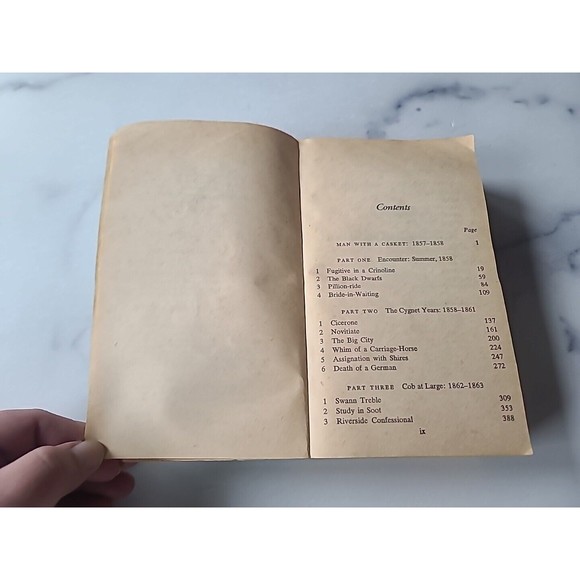 Contents
Page
MAN WITH A CASKET: 1857–1858 1
PART ONE Encounter: Summer, 1858
1 Fugitive in a Crinoline 19
2 The Black Dwarfs 59
3 Pillion-ride 84
4 Bride-in-Waiting 109
PART TWO The Cygnet Years: 1858–1861
1 Cicerone 137
2 Novitiate 161
3 The Big City 200
4 Whim of a Carriage-Horse 224
5 Assignation with Shires 247
6 Death of a German 272
PART THREE Cob at Large: 1862–1863
1 Swann Treble 309
2 Study in Soot 353
3 Riverside Confessional 388
ix